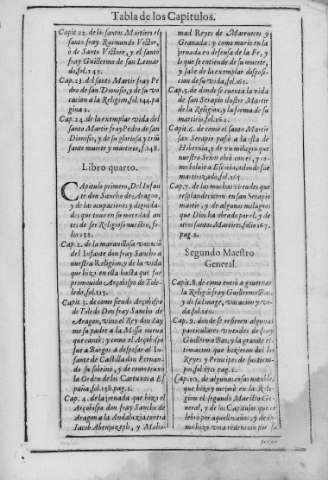 Tabla de los Capitulos.
Capit 22. de los santos Martires el
santo fray Raimundo Victor,
o de Santo Victor, y el santo
fray Guillermo de san Leonar
do, fol. 142.
Cap. 23. del santo Martir fray Pe
dro de san Dionisio, y de su vo
cacion a la Religion, fol. 144. pa
gina 2.
Cap. 24. de la exemplar vida del
santo Martir fray Pedro de san
Dionisio, y de su gloriosa y triũ
fante muerte y martirio, f. 148.
Libro quarto.
Capitulo primero, Del Infan
te don Sancho de Aragon,
y de las ocupaciones y dignida
des que tuvo en su mocedad an
tes de ser Religioso nuestro, fo
lio
Cap. 2. de la maravillosa vocació
del Infante don fray Sancho a
nuestra Religion, y de la vida
que hizo en ella hasta que fue
promovido Arçobispo de To
ledo, fol. 153.
Capit. 3. de como siendo Arçobispo
de Toledo Don fray Sancho de
Aragon, vino el Rey don Iay
me su padre a la Missa nueva
que cantò; y como el Arçobispo
fue a Burgos a desposar al In
fante de Castilla don Fernan
do su sobrino, y de como truxo
la Orden de los Cartuxos a Es
paña, fol. 158. pag. 2.
Cap. 4. de la jornada que hizo el
Arçobispo don fray Sancho de
Aragon a la Andaluzia contra
Iacob Abenjuzeph, y Maho
mad Reyes de Marruecos y
Granada: y como murio en la
jornada en defensa de la Fe, y
lo que se entiende de su muerte,
y sale de la exemplar disposi
cion de su vida, fol. 161.
Cap. 5. de donde se cuenta la vida
de san Serapio ilustre Martir
de la Religion, y la forma de su
martirio, fol. 162.
Cap. 6. de como el santo Martir
san Serapio passò a la isla de
Hibernia, y de un milagro que
nuestro Señor obrò en el, y co
mo bolvio a Escocia, adonde fue
martirizado, fol. 165.
Cap. 7. de las muchas virtudes que
resplandecieron en san Serapio
martir, y de algunos milagros
que Dios ha obrado por el, y de
otros santos Martires, fol. 167.
pag. 2.
Segundo Maestro
General.
Capit. 8. de como entrò a governar
la Religion fray Guillermo Bas,
y de su linage, vocacion y vir
tudes,
Cap. 9. donde se refieren algunas
particulares virtudes de fray
Guillermo Bas, y la grande es
timacion que hizieron del los
Reyes y Principes de sus tiem
pos, fol. 170. pag. 2.
Cap. 10. de algunas cosas notables
que hizo y
el segundo Maestro Ge
neral, y de los Capitulos que ce
lebro por aquellos años; y de co
mo hizo